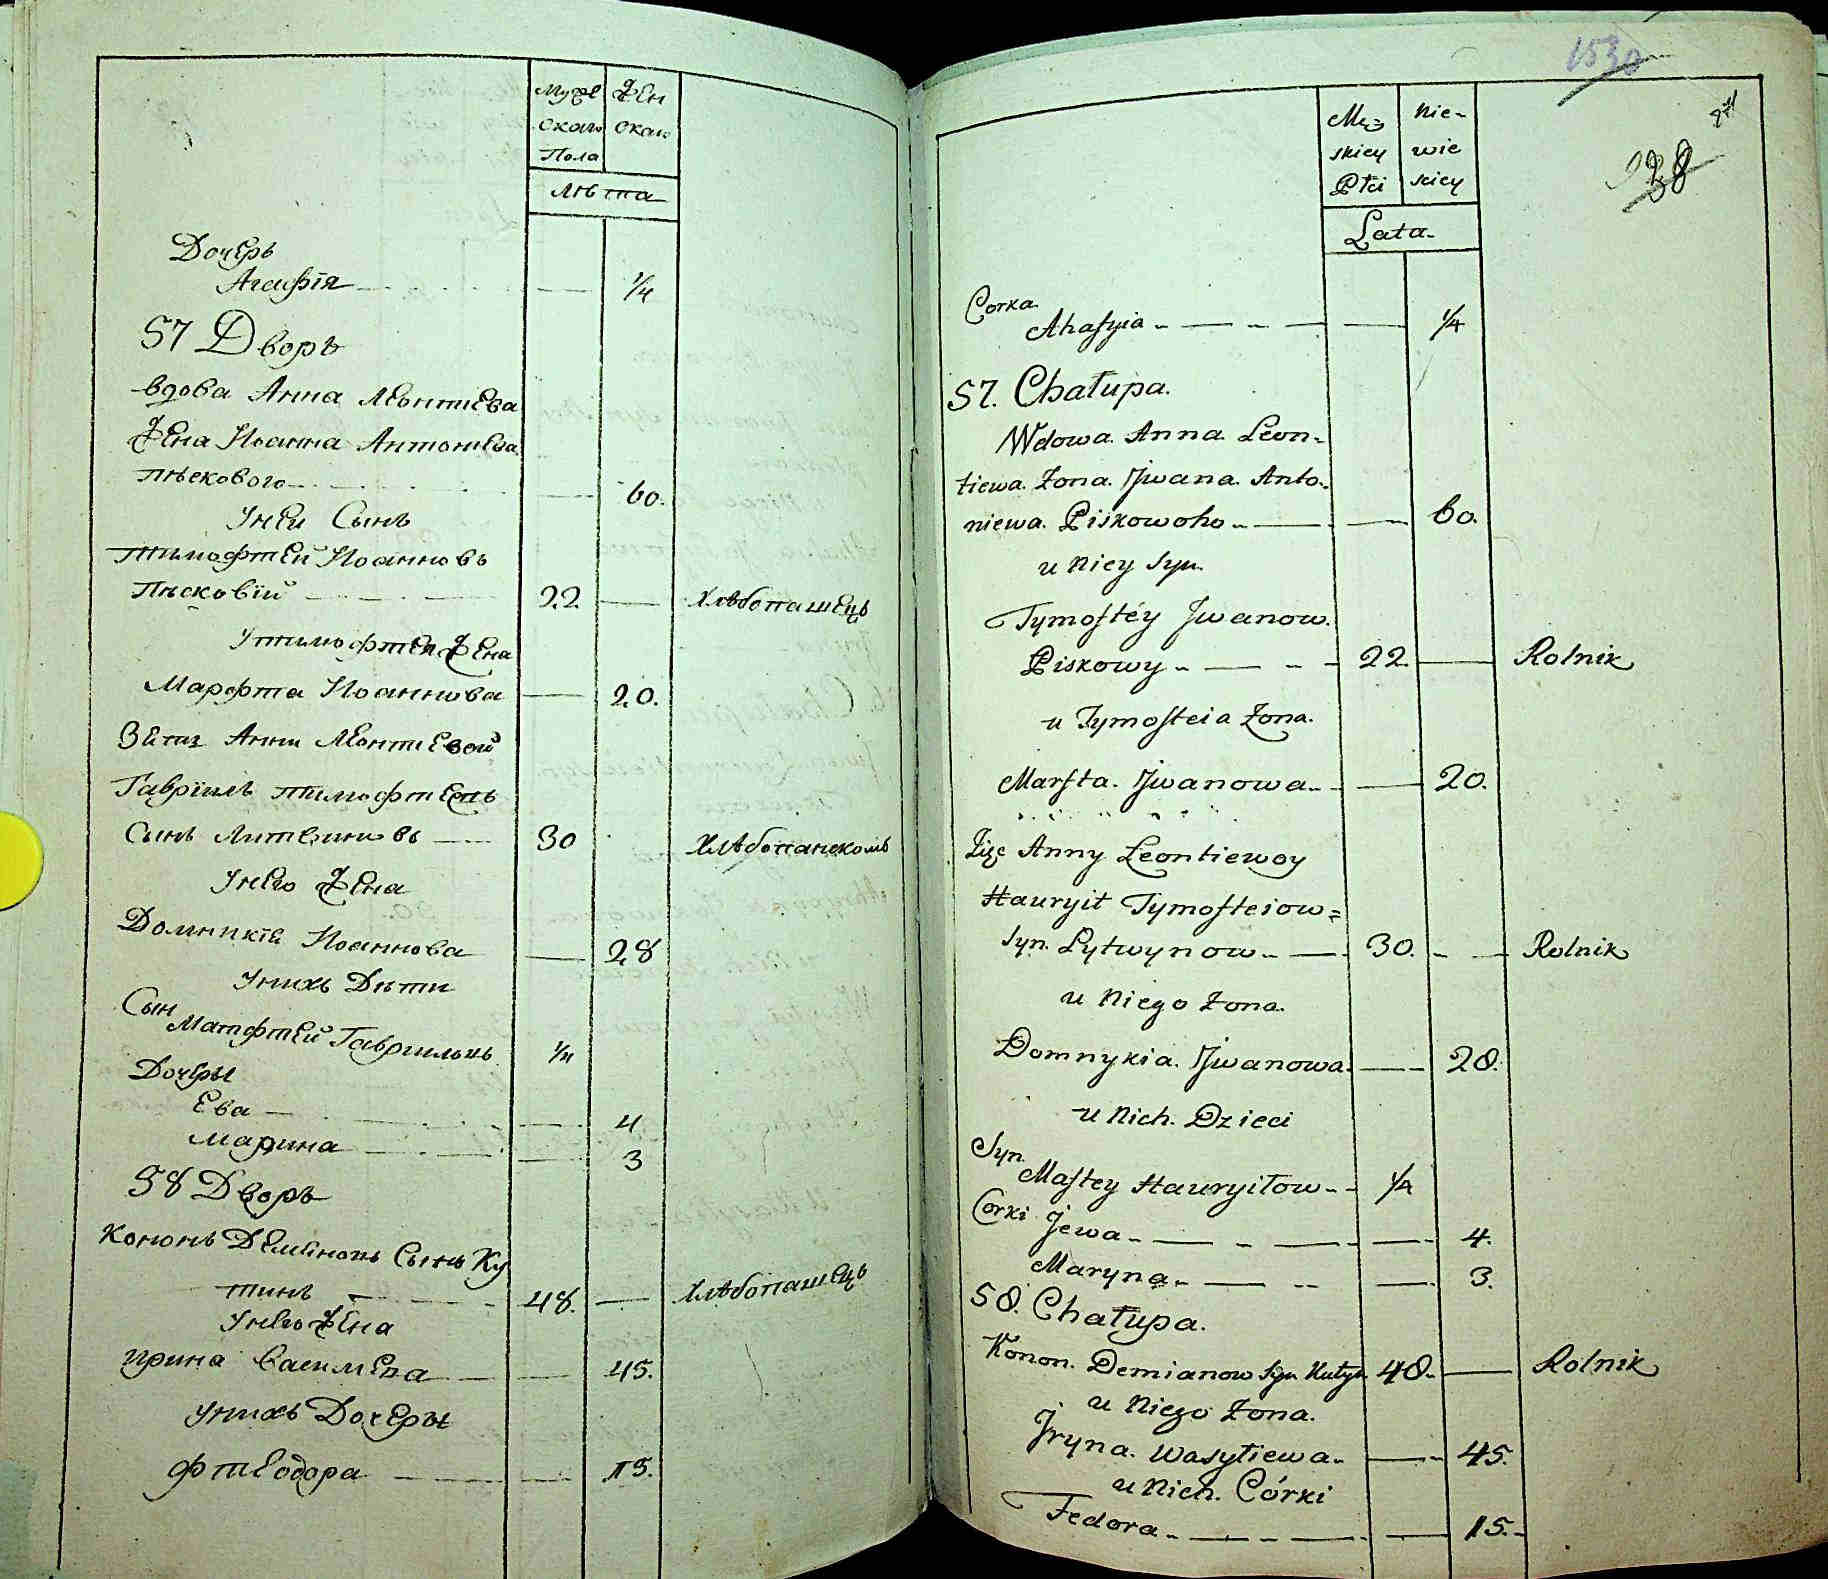 Муже Жен
ского ского
Пола
Лѣта
Дочерь
Агафія 1/4
57 Дворъ
вдова Анна Леонтиева
Жена Иоанна Антониева
пѣскового 60.
Унеи Сынъ
тимофтей Иоанновъ
Пѣсковій 22. Хлѣбопашецъ
Утимофтея Жена
Марфта Иоаннова 20.
Зять Анни Леонтиевой
Гавріилъ тимофтеевъ
Сынъ Литвиновъ 30
Унего Жена
Домникія Иоаннова 28
Унихъ Дѣти
Сын
Матфтей Гавриловъ 1/4
Дочеры
Ева 4
Марина 3
58 Дворъ
Кононъ Деміановъ Сынъ Ку
тинъ 48. Хлѣбопашецъ
Унего Жена
Ирина Василева 45.
Унихъ Дочеры
фтеодора 15.
1530
Mę- Nie-
skiey wie
Płci sciey
Lata
Corka
Ahafyia 1/4
57. Chałupa.
Wdowa Anna Leon-
tiewa Żona Jwana Anto-
niewa Piskowoho 60.
u Niey Syn.
Tymoftéy Jwanow.
Piskowy 22. Rolnik
u Tymofteia Żona.
Marfta Jwanowa 20.
Zięc Anny Leontiewoy
Hauryił Tymofteiow=
Syn Lytwynow 30. Rolnik
u Niego Żona.
Domnykia Jwanowa 28.
u Nich Dzieci
Syn
Maftey Hauryiłow 1/4
Corki Jewa 4.
Maryna 3.
58. Chałupa.
Konon Demianow Syn Kutyn 48. Rolnik
u Niego Żona.
Jryna Wasyliewa 45.
u Nich Córki
Fedora 15.